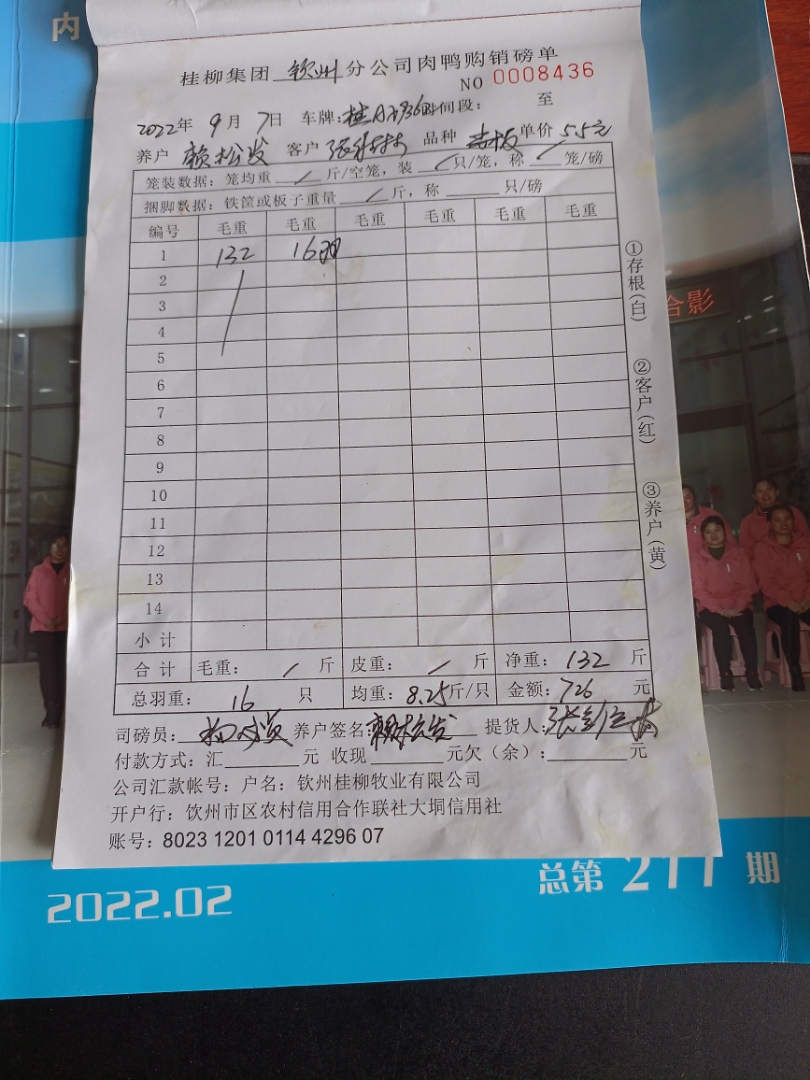 内
桂柳集团 钦州 分公司肉鸭购销磅单
NO 0008436
2022年 9月 7日 车牌: 时间段: 至
养户 赖松发 客户 品种 单价 5.5元
笼装数据: 笼均重 / 斤/空笼, 装 / 只/笼, 称 / 笼/磅
捆脚数据: 铁筐或板子重量 / 斤, 称 只/磅
编号 毛重 毛重 毛重 毛重 毛重 毛重
1 132 16羽
2
3
4
5
6
7
8
9
10
11
12
13
14
小计
合计 毛重: / 斤 皮重: / 斤 净重: 132 斤
总羽重: 16 只 均重: 8.25斤/只 金额: 726 元
司磅员: 养户签名: 赖松发 提货人:
付款方式: 汇 元 收现 元欠(余): 元
公司汇款帐号: 户名: 钦州桂柳牧业有限公司
开户行: 钦州市区农村信用合作联社大垌信用社
账号: 8023 1201 0114 4296 07
①存根(白) ②客户(红) ③养户(黄)
合影
2022.02
总第 277 期